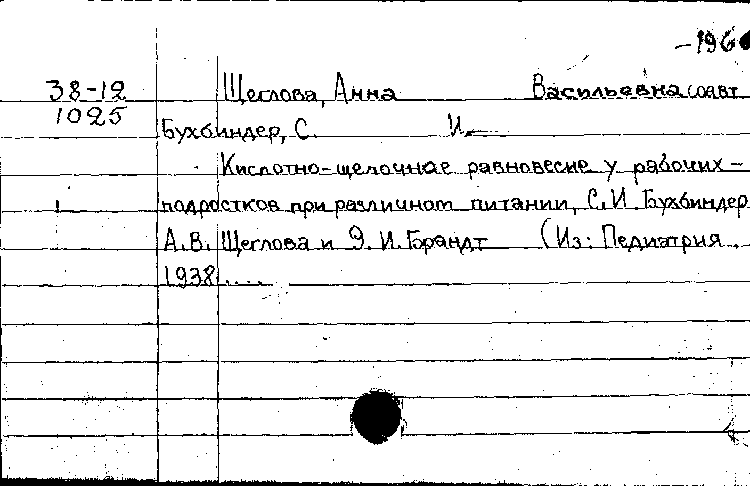 -196
38-12 Щеглова, Анна Васильевна соавт
1025
Бухбиндер, С. И.
Кислотно-щелочное равновесие у рабочих-
подростков при различном питании, С. И. Бухбиндер
А. В. Щеглова и Э. И. Брандт (Из: Педиатрия.
1938....